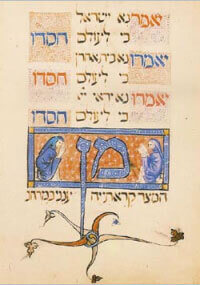 יאמר נא ישראל
כי לעולם חסדו
יאמרו נא בית אהרן
כי לעולם חסדו
יאמרו נא יראי יי
כי לעולם חסדו
מן
המצר קראתי יה ענני